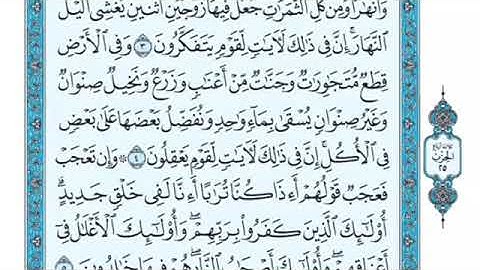 وَأَنْهَٰرًا وَمِن كُلِّ ٱلثَّمَرَٰتِ جَعَلَ فِيهَا زَوْجَيْنِ ٱثْنَيْنِ يُغْشِى ٱلَّيْلَ
ٱلنَّهَارَ إِنَّ فِى ذَٰلِكَ لَءَايَٰتٍ لِّقَوْمٍ يَتَفَكَّرُونَ ٣ وَفِى ٱلْأَرْضِ
قِطَعٌ مُّتَجَٰوِرَٰتٌ وَجَنَّٰتٌ مِّنْ أَعْنَٰبٍ وَزَرْعٌ وَنَخِيلٌ صِنْوَانٌ
وَغَيْرُ صِنْوَانٍ يُسْقَىٰ بِمَآءٍ وَٰحِدٍ وَنُفَضِّلُ بَعْضَهَا عَلَىٰ بَعْضٍ
فِى ٱلْأُكُلِ إِنَّ فِى ذَٰلِكَ لَءَايَٰتٍ لِّقَوْمٍ يَعْقِلُونَ ٤ ۞ وَإِن تَعْجَبْ
فَعَجَبٌ قَوْلُهُمْ أَءِذَا كُنَّا تُرَٰبًا أَءِنَّا لَفِى خَلْقٍ جَدِيدٍ
أُو۟لَٰٓئِكَ ٱلَّذِينَ كَفَرُوا۟ بِرَبِّهِمْ وَأُو۟لَٰٓئِكَ ٱلْأَغْلَٰلُ فِىٓ
أَعْنَاقِهِمْ وَأُو۟لَٰٓئِكَ أَصْحَٰبُ ٱلنَّارِ هُمْ فِيهَا خَٰلِدُونَ ٥
الحزب
٢٥